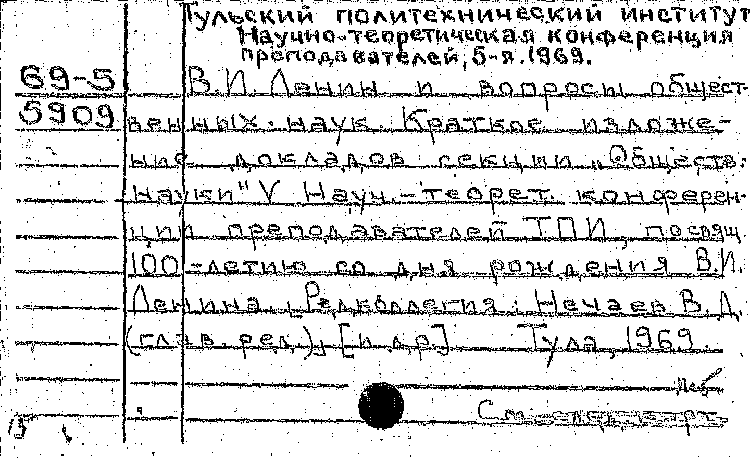 Тульский политехнический институт
Научно-теоретическая конференция
преподавателей, 5-я. 1969.
69-5
5909
В.И. Ленин и вопросы общест-
венных наук. Краткое изложе-
ние докладов секции „Обществ.
науки" V Науч.-теорет. конферен-
ции преподавателей ТПИ, посвящ.
100-летию со дня рождения В.И.
Ленина. [Редколлегия: Нечаев В.Д.
(глав. ред.), [и др.] Тула, 1969.
См.
15